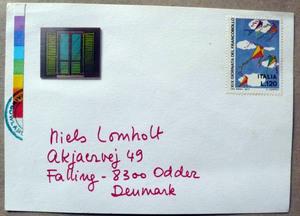 XIX GIORNATA DEL FRANCOBOLLO
ITALIA
L.120
Niels Lomholt
Akjaervej 49
Falling - 8300 Odder
Denmark